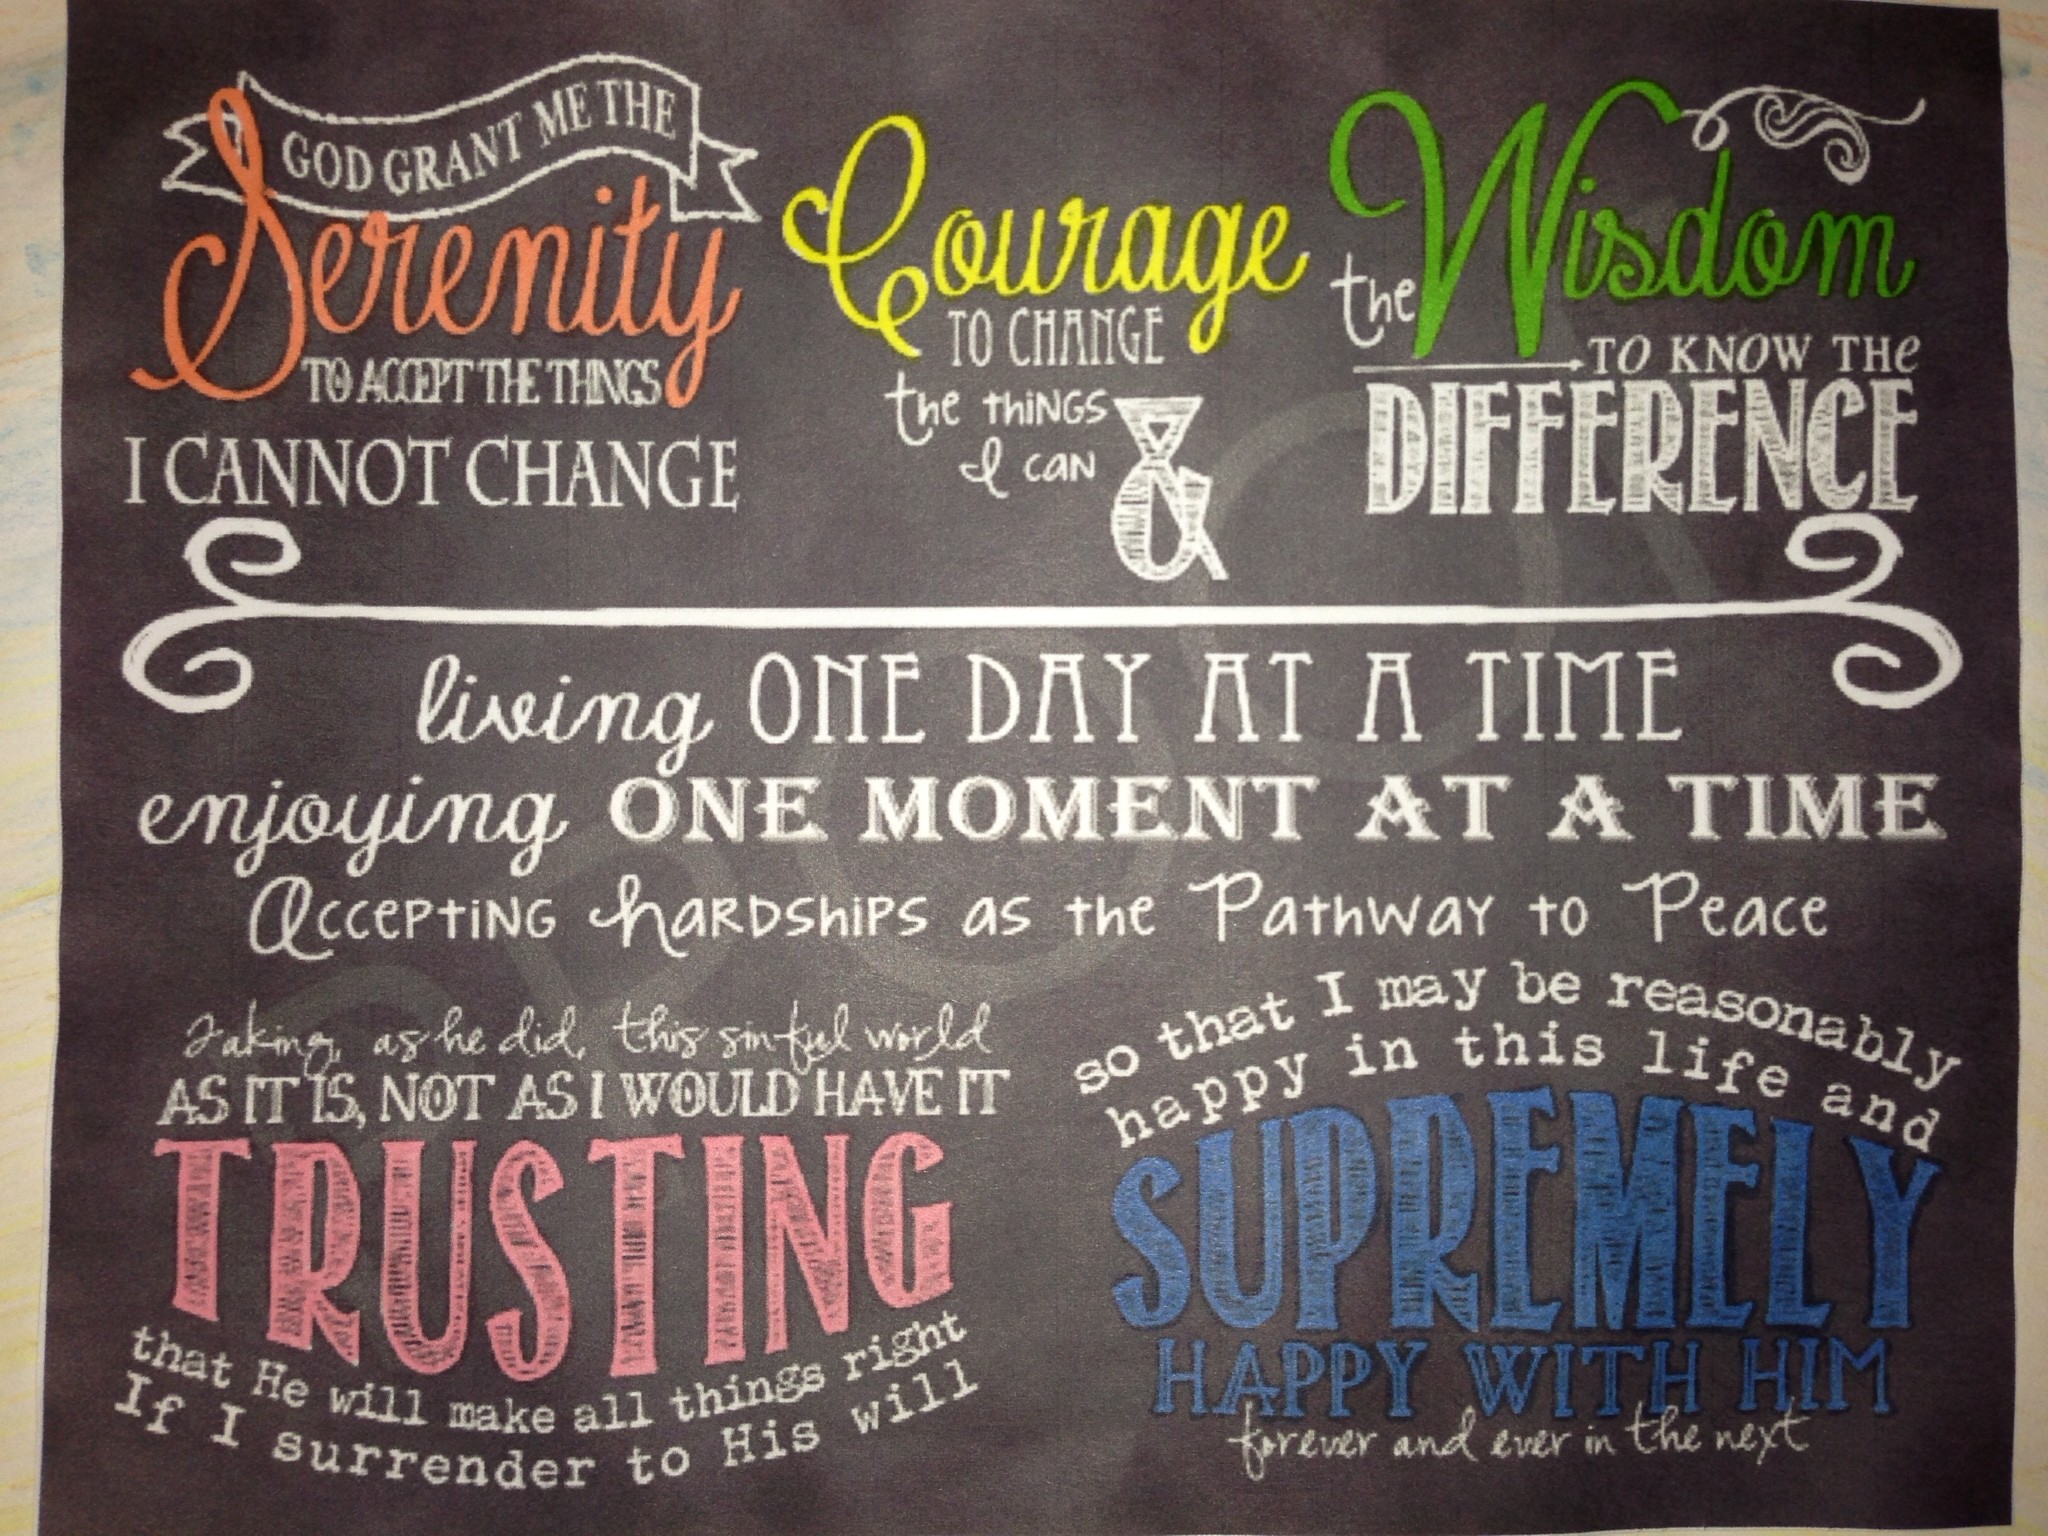 GOD GRANT ME THE
Serenity
TO ACCEPT THE THINGS
I CANNOT CHANGE
Courage
TO CHANGE
the things
I can
&
the Wisdom
TO KNOW THE
DIFFERENCE
living ONE DAY AT A TIME
enjoying ONE MOMENT AT A TIME
Accepting hardships as the Pathway to Peace
Taking, as he did, this sinful world
AS IT IS, NOT AS I WOULD HAVE IT
TRUSTING
that He will make all things right
If I surrender to His will
so that I may be reasonably
happy in this life and
SUPREMELY
HAPPY WITH HIM
forever and ever in the next